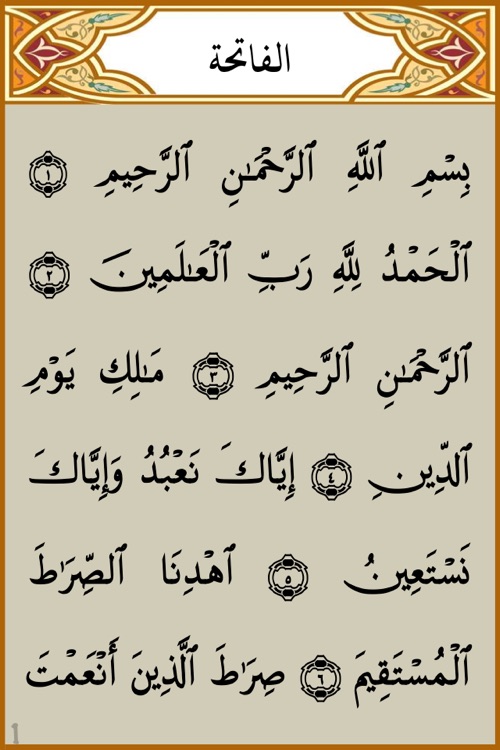 الفاتحة
بِسْمِ ٱللَّهِ ٱلرَّحْمَـٰنِ ٱلرَّحِيمِ ١
ٱلْحَمْدُ لِلَّهِ رَبِّ ٱلْعَـٰلَمِينَ ٢
ٱلرَّحْمَـٰنِ ٱلرَّحِيمِ ٣ مَـٰلِكِ يَوْمِ
ٱلدِّينِ ٤ إِيَّاكَ نَعْبُدُ وَإِيَّاكَ
نَسْتَعِينُ ٥ ٱهْدِنَا ٱلصِّرَٰطَ
ٱلْمُسْتَقِيمَ ٦ صِرَٰطَ ٱلَّذِينَ أَنْعَمْتَ
1